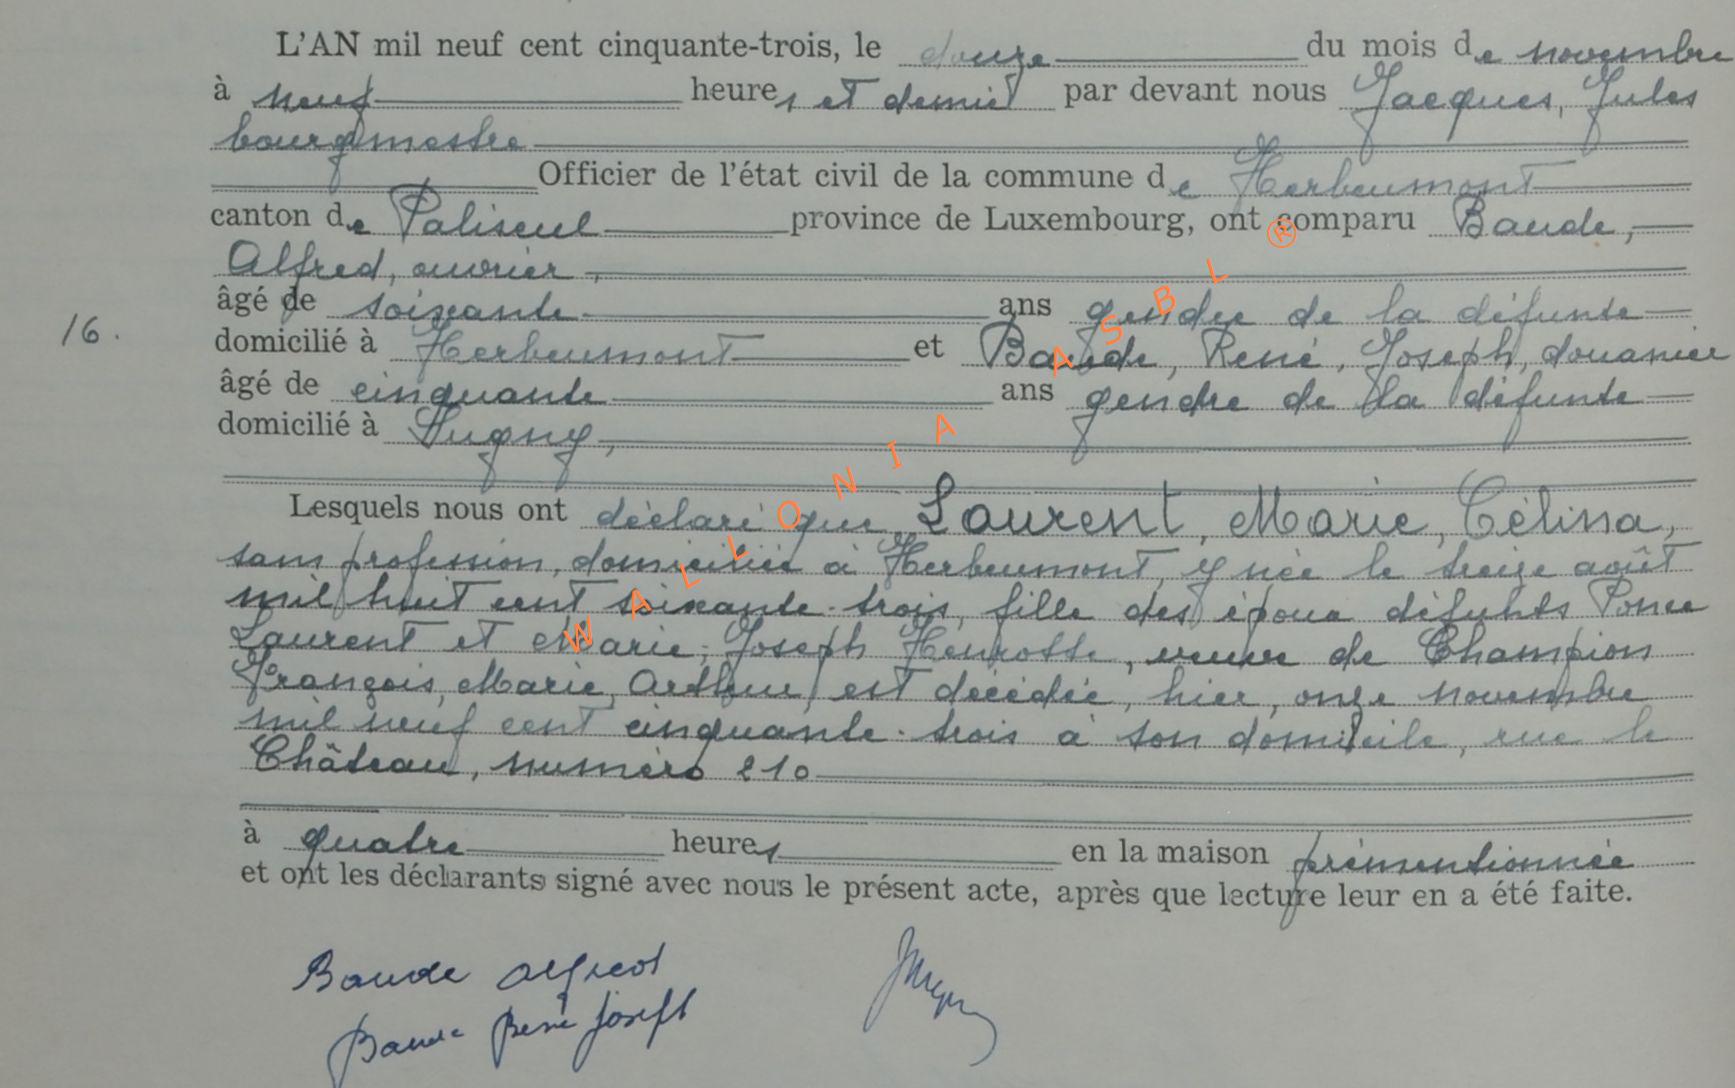 L'AN mil neuf cent cinquante-trois, le douze du mois de novembre
à neuf heures et demie par devant nous Jacques, Jules
bourgmestre
Officier de l'état civil de la commune de Herbeumont
canton de Paliseul province de Luxembourg, ont comparu Baude,
Alfred, ouvrier,
âgé de soixante ans gendre de la défunte
16. domicilié à Herbeumont et Baude, René, Joseph, douanier
âgé de cinquante ans gendre de la défunte
domicilié à Sugny,
Lesquels nous ont déclaré que Laurent, Marie, Célina,
sans profession, domiciliée à Herbeumont, y née le treize août
mil huit cent soixante-trois, fille des époux défunts Ponce
Laurent et Marie, Joseph Henrotte, veuve de Champion
François, Marie, Arthur, est décédée, hier, onze novembre
mil neuf cent cinquante-trois à son domicile, rue le
Château, numéro 210
à quatre heures en la maison prémentionnée
et ont les déclarants signé avec nous le présent acte, après que lecture leur en a été faite.
Baude Alfred
Baude René Joseph
WALLONIA ASBL ®